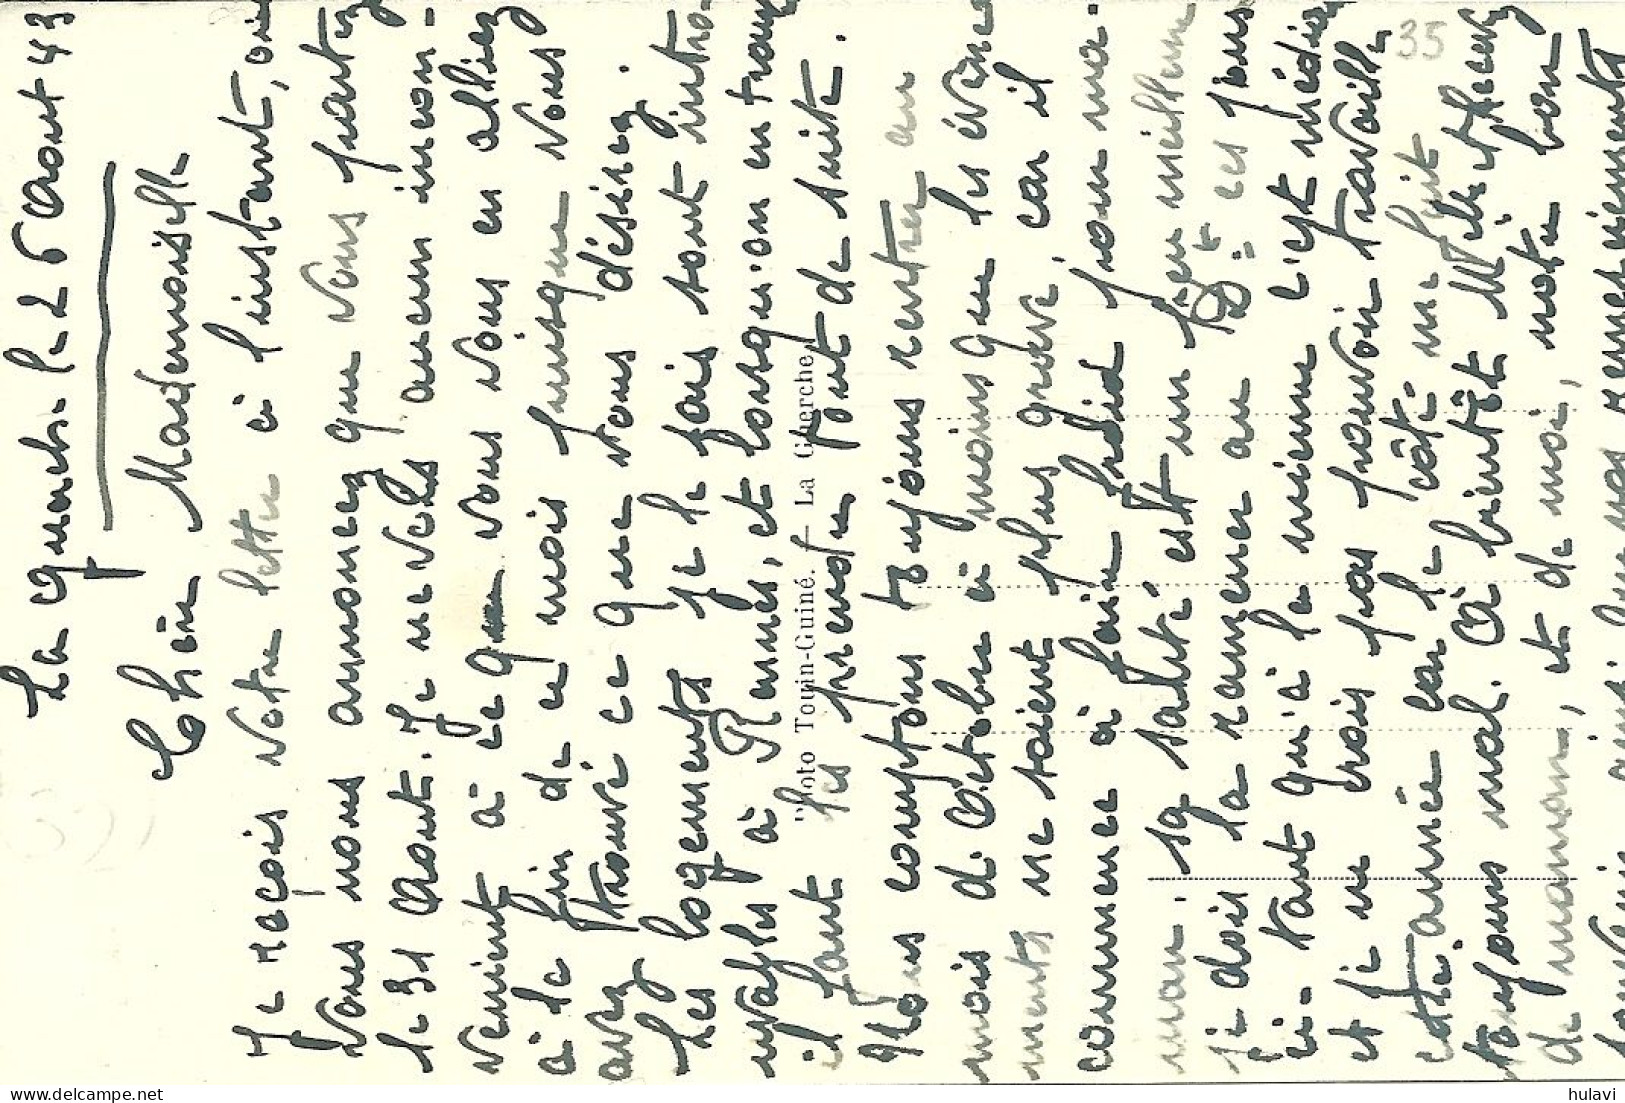 La Guerche le 26 Aout 43
Chère Mademoiselle
Je reçois votre lettre à l'instant, où
vous nous annoncez que vous partez
le 31 Aout. Je ne vois aucun incon-
venient à ce que vous vous en alliez
à la fin de ce mois puisque vous
avez trouvé ce que vous désirez.
Les logements je le sais sont introu-
vables à Rennes, et lorsqu'on en trouve
il faut les prendre tout de suite.
Nous comptons toujours rentrer au
mois d'Octobre à moins que les évène
ments ne soient plus graves car il
commence à faire froid pour ma-
man. sa santé est un peu meilleure
je dois la ramener au Dr ces jours
ci. Tant qu'à la mienne c'est médiocre
et je ne crois pas pouvoir travailler
cette année car le côté me fait
toujours mal. A bientôt Melle
de maman, et de moi, notre bon
souvenir ainsi que nos remerciements
Photo Touin-Guiné. - La Guerche
35
hulavi